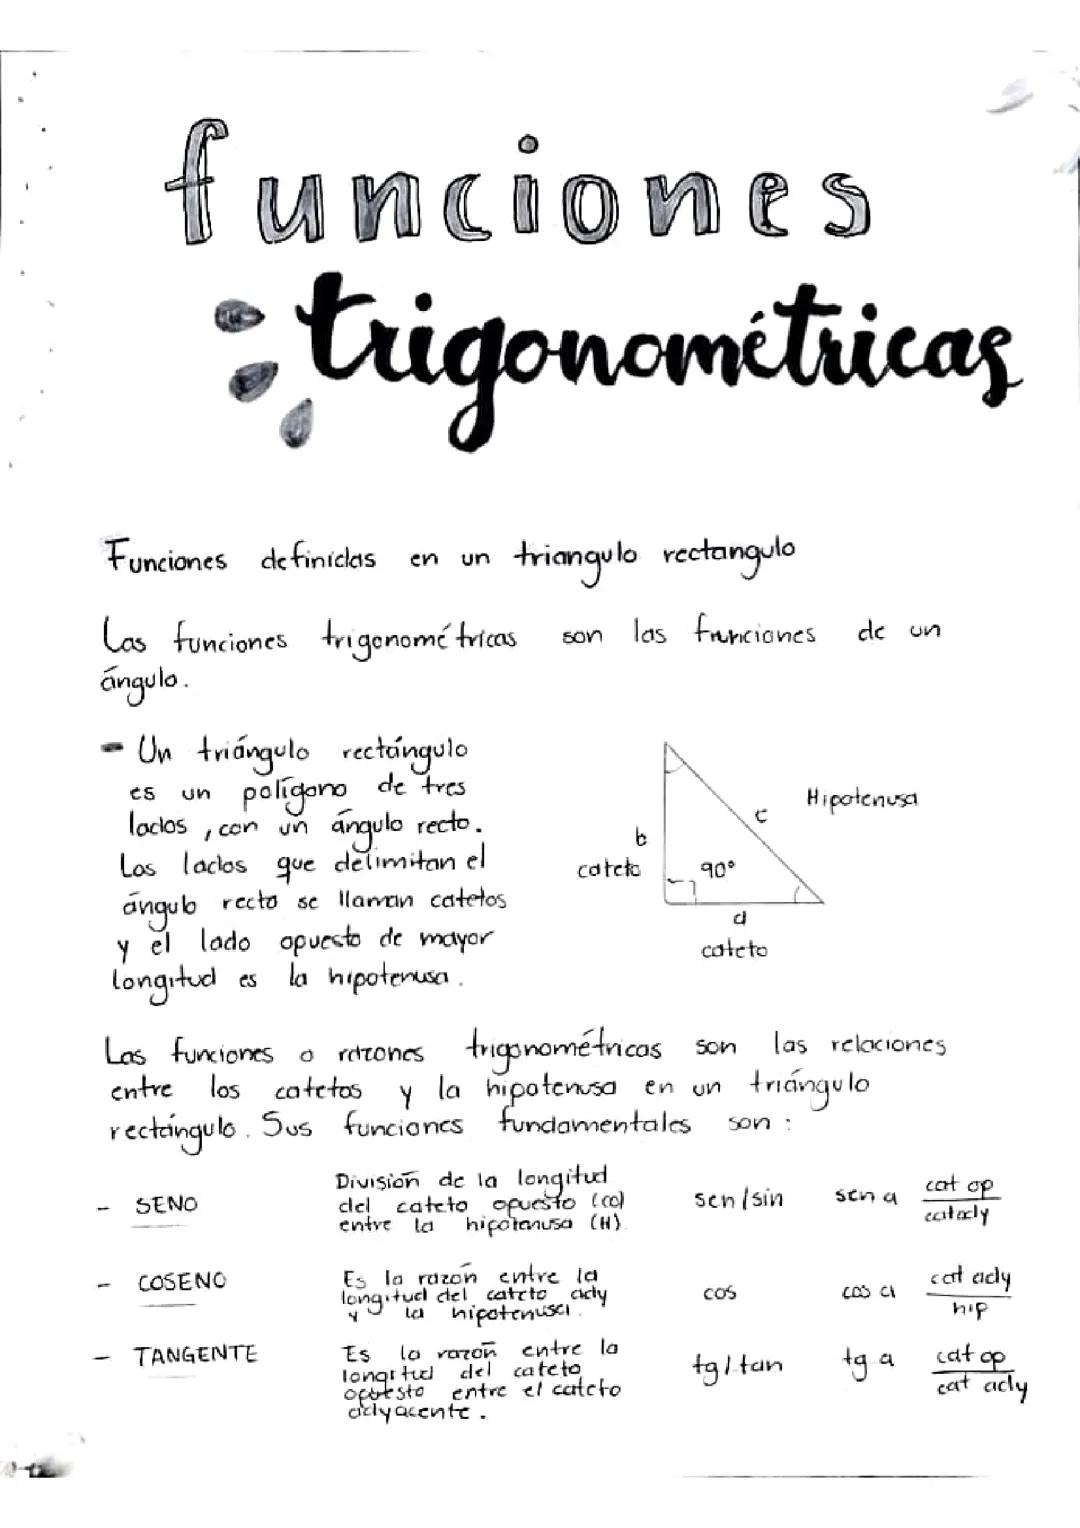 funciones
trigonométricas
Funciones definidas en un triangulo rectangulo
Las funciones trigonométricas son las funciones de un
ángulo.
- Un triángulo rectángulo
es un polígono de tres
lados, con un ángulo recto.
Los lados que delimitan el
ángulo recto se llaman catetos
y el lado opuesto de mayor
longitud es la hipotenusa.
b
cateto
90°
c
Hipotenusa
a
cateto
Las funciones o razones trigonométricas son las relaciones
entre los catetos y la hipotenusa en un triángulo
rectángulo. Sus funciones fundamentales son:
- SENO
División de la longitud
del cateto opuesto (co)
entre la hipotenusa (H).
sen/sin
sen a
cat op
cat ady
- COSENO
Es la razón entre la
longitud del cateto ady
y la hipotenusa.
cos
cos a
cat ady
hip
- TANGENTE
Es la razón entre la
longitud del cateto
opuesto entre el cateto
adyacente.
tg/tan
tg a
cat op
cat ady